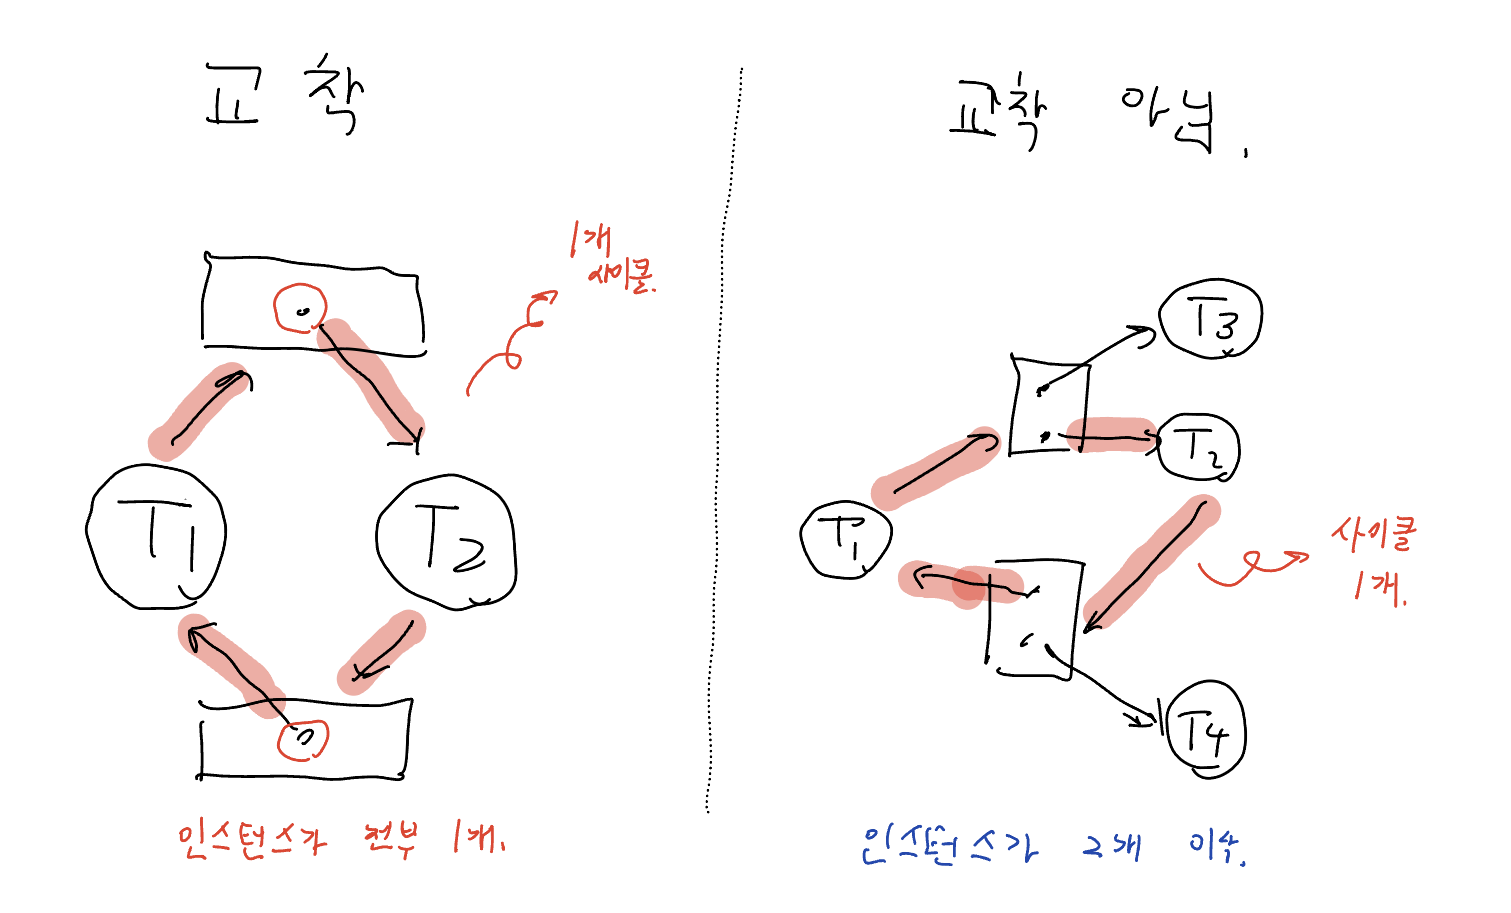 교착
1개
사이클.
T1
T2
인스턴스가 전부 1개.
교착 아님.
T3
T2
T1
사이클
1개.
T4
인스턴스가 2개 이상.